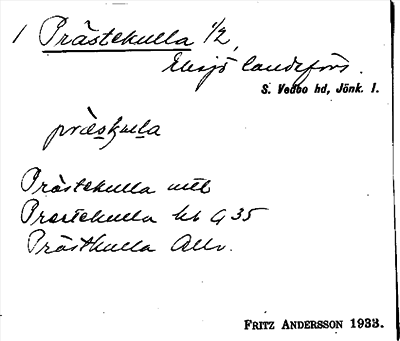 1 Prästekulla 1/2,
landsförs.
S. Vedbo hd, Jönk. l.
präskula
Prästekulla
Prestekulla kb G 35
Prästkulla Allv.
FRITZ ANDERSSON 1933.